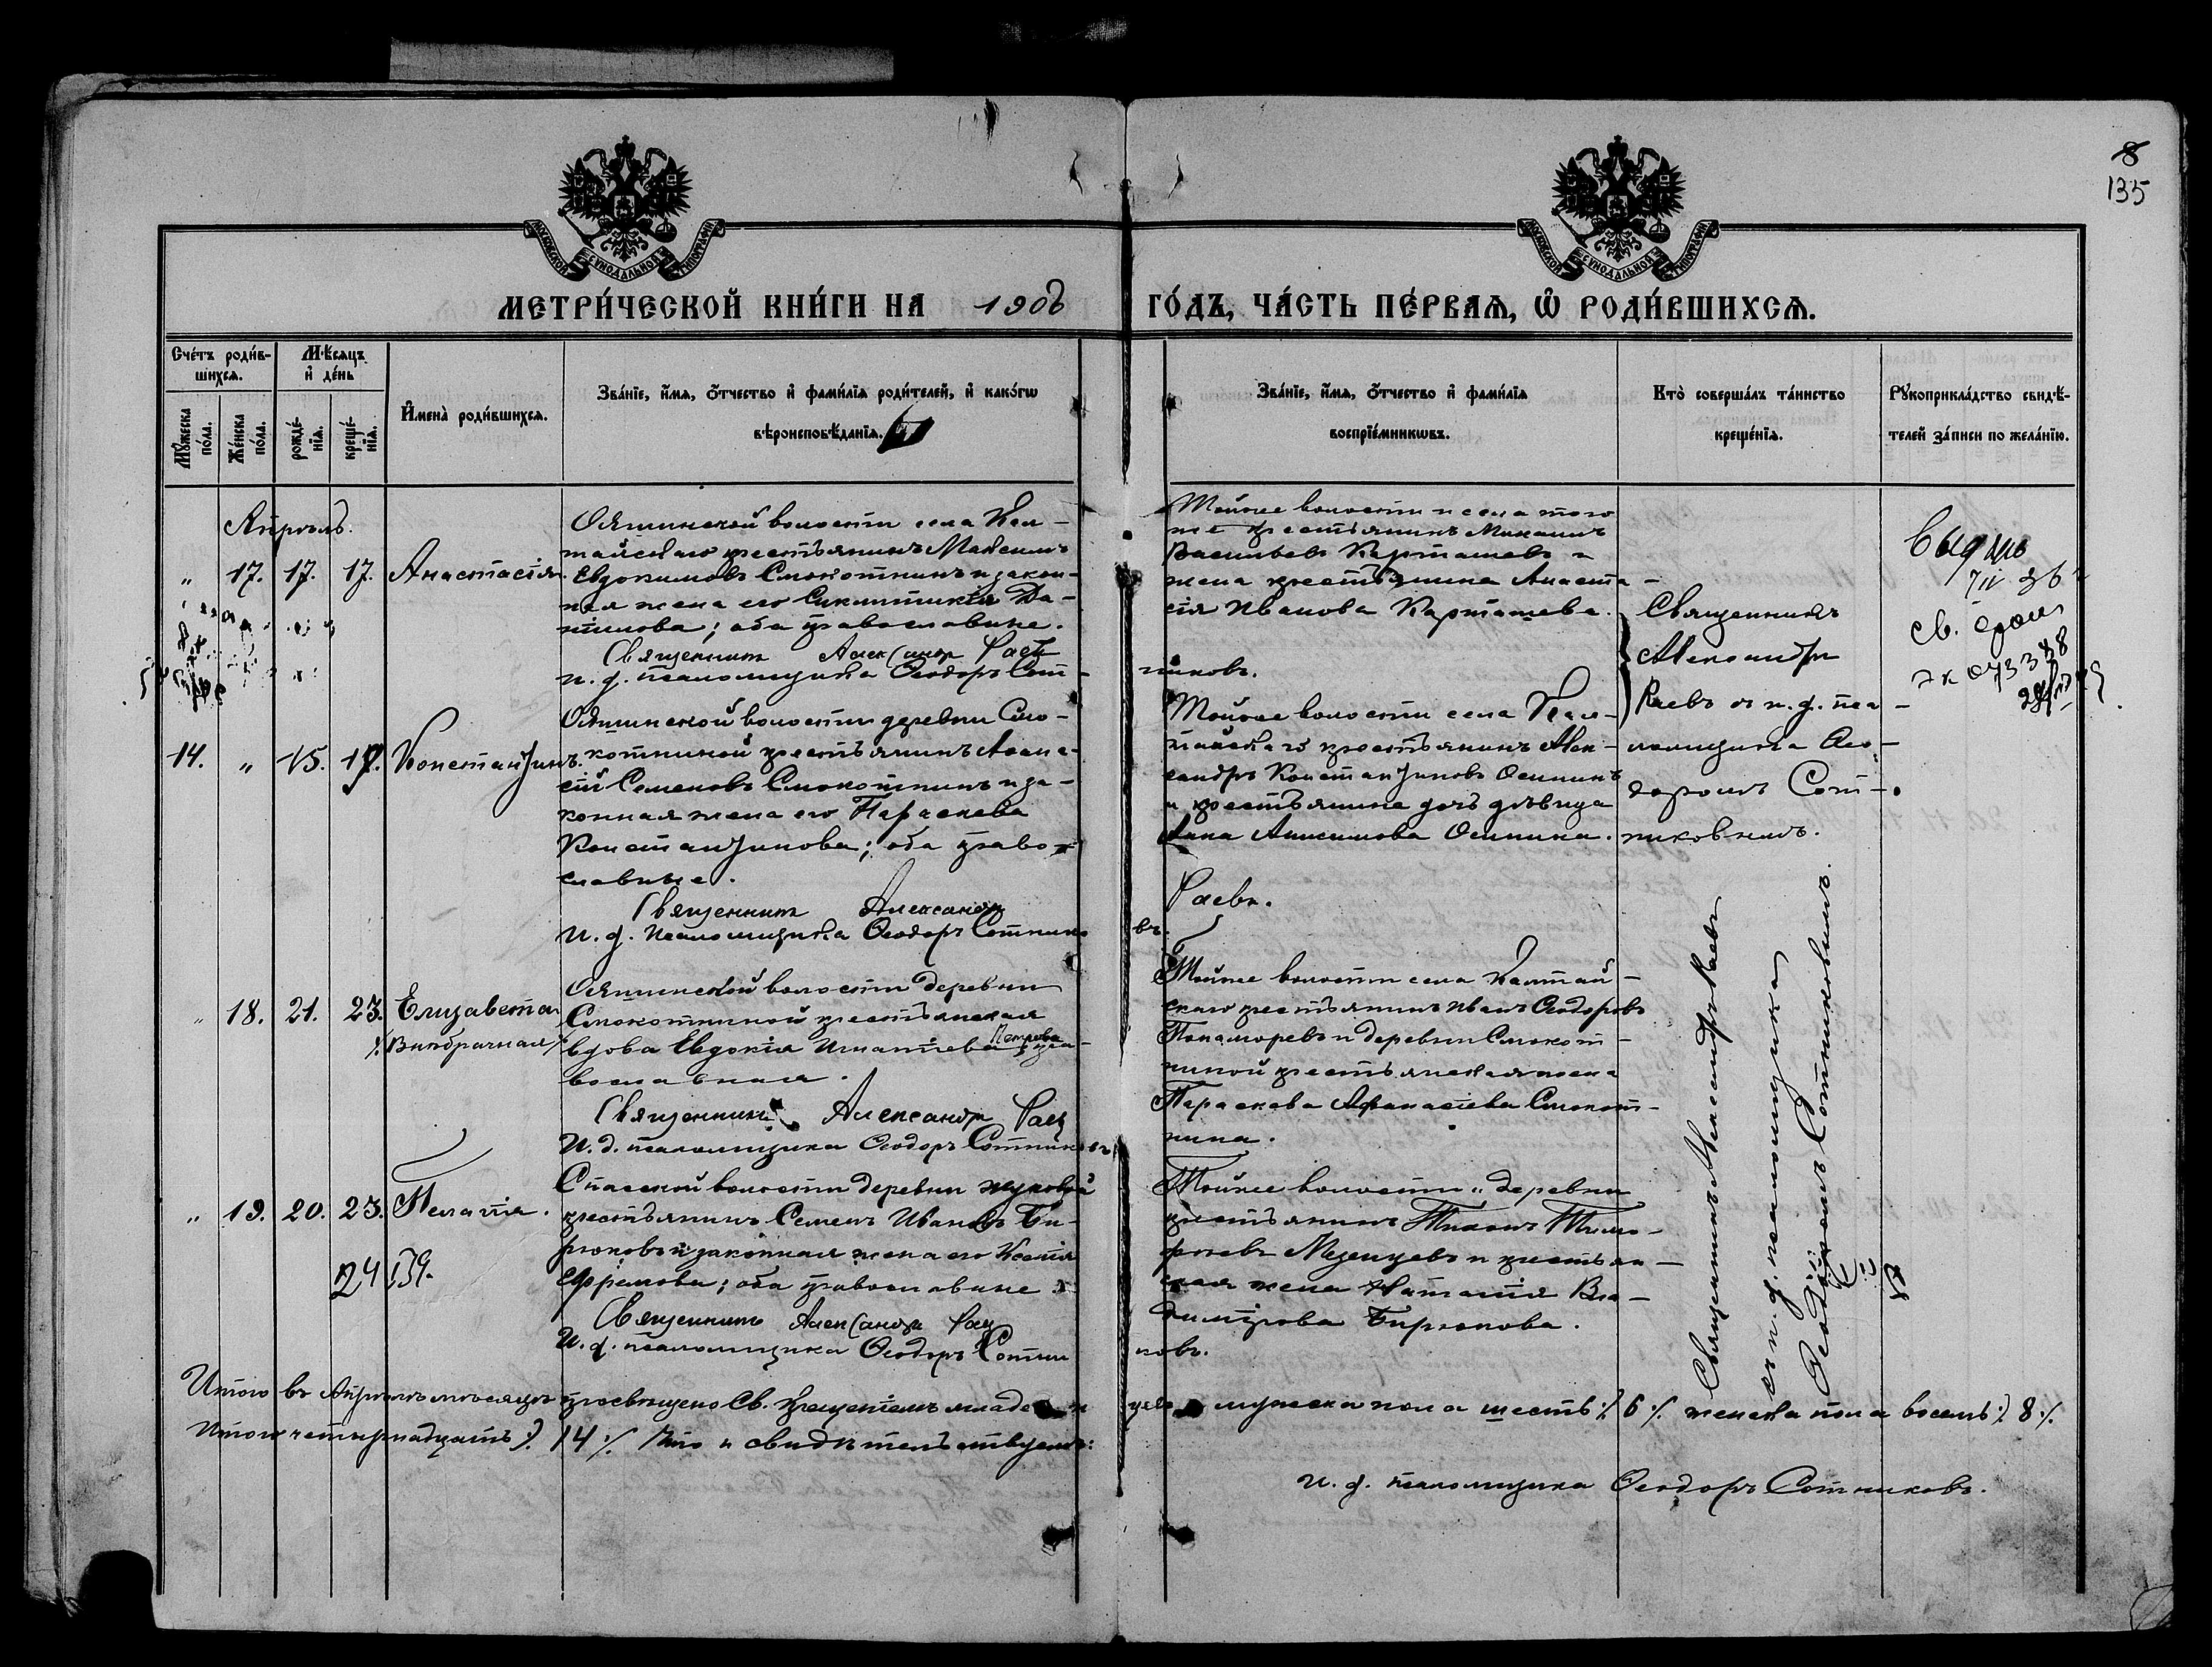 8
135
МОСКОВСКОЙ СУНОДАЛЬНОЙ ТИПОГРАФІИ
МОСКОВСКОЙ СУНОДАЛЬНОЙ ТИПОГРАФІИ
МЕТРИ́ЧЕСКОЙ КНИ́ГИ НА 1906 ГО́ДЪ, ЧА́СТЬ ПЕ́РВАѦ, Ѡ РОДИ́ВШИХСѦ.
Сче́тъ роди́в-
шихсѧ.
Мꙋжеска по́ла.
Же́нска по́ла.
М́ѣсѧцъ
и́ де́нь
рожде́-
нїѧ.
креще́-
нїѧ.
И҆мена̀ роди́вшихсѧ.
Зва́нїе, и҆́мѧ, ѻ҆́тчество и҆ фами́лїѧ роди́телей, и҆ како́гѡ
вѣроисповѣ́данїѧ.
Зва́нїе, и҆́мѧ, ѻ҆́тчество и҆ фами́лїѧ
воспрїе́мникѡвъ.
Кто̀ соверша́лъ та́инство
креще́нїѧ.
Рꙋкоприкла́дство свидѣ́-
телей за́писи по жела́нїю.
Апрѣль.
" 17. 17. 17. Анастасія.
Ояшинской волости села Кал-
тайскаго крестьянинъ Максимъ
Евдокимовъ Смокотнинъ и закон-
ная жена его Да-
нилова; оба православные.
Священникъ Александр Раевъ
и. д. псаломщика Ѳеодоръ Сот-
никовъ.
Тойже волости и села того
же крестьянинъ Михаилъ
Васильевъ Карташевъ и
жена крестьянина Анаста-
сія Иванова Карташева.
Священникъ
Александръ
Раевъ съ и. д. пса-
ломщика Ѳео-
доромъ Сот-
никовымъ.
7 IV 36 г
св. о рож
073388
14. " 15. 17. Константинъ.
волости деревни Смо-
котниной крестьянинъ Аѳана-
сій Семеновъ Смокотнинъ и за-
конная жена его Параскева
Константинова; оба право-
славные.
Священникъ Александръ
Раевъ.
и. д. псаломщика Ѳеодоръ Сотнико
въ.
Тойже волости села Кал-
тайскаго крестьянинъ Алек-
сандръ Константиновъ Осипинъ
и крестьянина дочь дѣвица
Анна Анисимова Осипина.
" 18. 21. 23. Елизавета
/:Внѣбрачная:/
волости деревни
Смокотниной крестьянская
вдова Евдокія Игнатіева Петрова; пра-
вославная.
Священникъ Александр Раев
И. д. псаломщика Ѳеодоръ Сотниковъ
Тойже волости села Калтай-
скаго крестьянинъ Иванъ Ѳеодоровъ
Пономаревъ и деревни Смокот-
ниной крестьянская жена
Параскева Аѳанасіева Смокот-
нина.
" 19. 20. 23. Пелагія.
24 159.
Спасской волости деревни Жуковой
крестьянинъ Семенъ Ивановъ Би-
рюковъ и законная жена его Ксенія
Ефремова; оба православные.
Священникъ Александр Раев
И. д. псаломщика Ѳеодоръ Сотни
ковъ.
Тойже волости и деревни
крестьянинъ Тихонъ Тимо-
феевъ Мезенцевъ и крестьян-
ская жена Наталія Вла-
димірова Бирюкова.
Священникъ Александръ Раевъ
съ и. д. псаломщика
Ѳеодоромъ Сотниковымъ.
Итого въ Апрѣлѣ мѣсяцѣ просвѣщено Св. Крещеніемъ младенцевъ мужеска пола шесть /:6:/ женска пола восемь /:8:/.
Итого четырнадцать /:14:/ Что и свидѣтельствуемъ:
и. д. псаломщика Ѳеодоръ Сотниковъ.